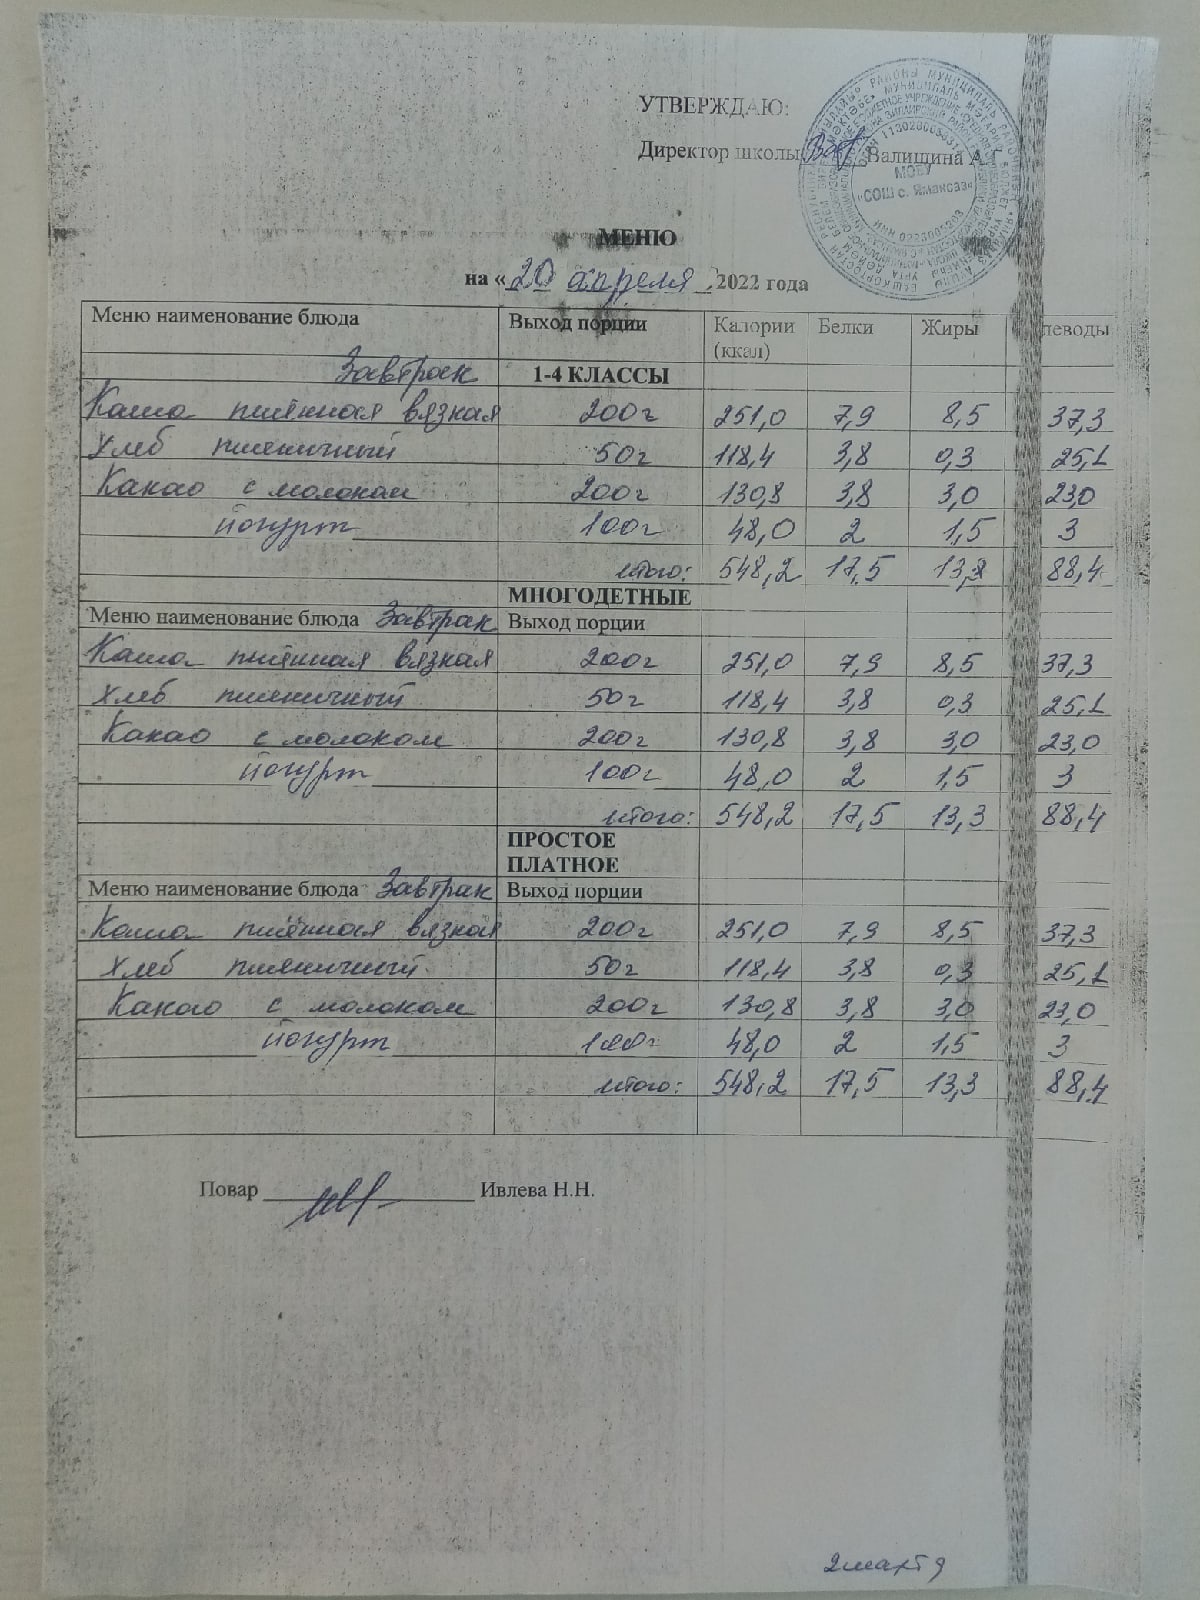 УТВЕРЖДАЮ:
Директор школы Валишина А.Г.
МОБУ
"СОШ с. Ямаксаз"
МЕНЮ
на « 20 апреля 2022 года
Меню наименование блюда Выход порции Калории (ккал) Белки Жиры леводы
Завтрак 1-4 КЛАССЫ
Каша пшённая вязкая 200г 251,0 7,9 8,5 37,3
Хлеб пшеничный 50г 118,4 3,8 0,3 25,1
Какао с молоком 200г 130,8 3,8 3,0 23,0
йогурт 100г 48,0 2 1,5 3
итого: 548,2 17,5 13,3 88,4
МНОГОДЕТНЫЕ
Меню наименование блюда Завтрак Выход порции
Каша пшённая вязкая 200г 251,0 7,9 8,5 37,3
Хлеб пшеничный 50г 118,4 3,8 0,3 25,1
Какао с молоком 200г 130,8 3,8 3,0 23,0
йогурт 100г 48,0 2 1,5 3
итого: 548,2 17,5 13,3 88,4
ПРОСТОЕ
ПЛАТНОЕ
Меню наименование блюда Завтрак Выход порции
Каша пшённая вязкая 200г 251,0 7,9 8,5 37,3
Хлеб пшеничный 50г 118,4 3,8 0,3 25,1
Какао с молоком 200г 130,8 3,8 3,0 23,0
йогурт 100г 48,0 2 1,5 3
итого: 548,2 17,5 13,3 88,4
Повар Ивлева Н.Н.